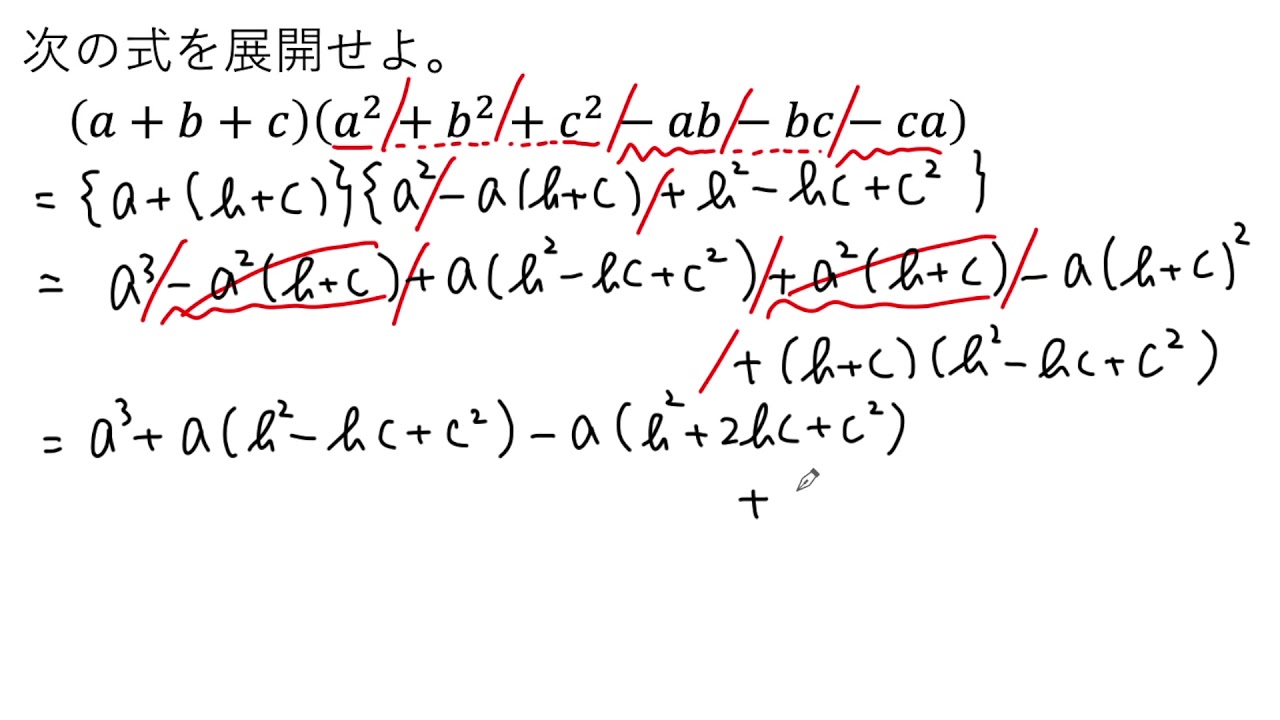 次の式を展開せよ。
(a + b + c)(a² + b² + c² − ab − bc − ca)
= {a+(b+c)}{a² − a(b+c) + b² − bc + c² }
= a³ − a²(b+c) + a(b² − bc + c²) + a²(b+c) − a(b+c)²
+ (b+c)(b² − bc + c²)
= a³ + a(b² − bc + c²) − a(b² + 2bc + c²)
+